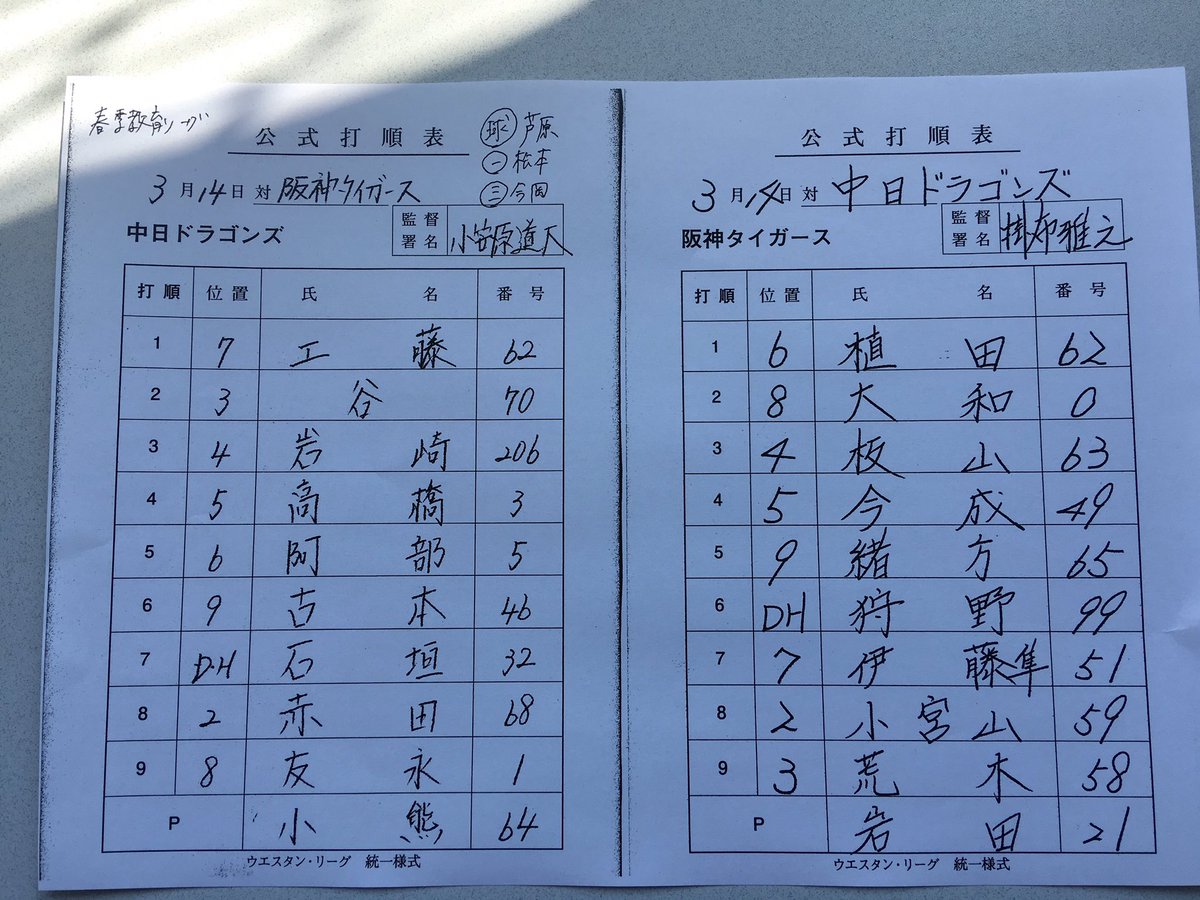 春季教育リーグ
公式打順表
球 芦原
一 松本
三 今岡
3月14日 対 阪神タイガース
中日ドラゴンズ
監督署名 小笠原道大
打順 位置 氏名 番号
1 7 工藤 62
2 3 谷 70
3 4 岩崎 206
4 5 高橋 3
5 6 阿部 5
6 9 古本 46
7 DH 石垣 32
8 2 赤田 68
9 8 友永 1
P 小熊 64
ウエスタン・リーグ 統一様式
公式打順表
3月14日 対 中日ドラゴンズ
阪神タイガース
監督署名 掛布雅之
打順 位置 氏名 番号
1 6 植田 62
2 8 大和 0
3 4 板山 63
4 5 今成 49
5 9 緒方 65
6 DH 狩野 99
7 7 伊藤隼 51
8 2 小宮山 59
9 3 荒木 58
P 岩田 21
ウエスタン・リーグ 統一様式